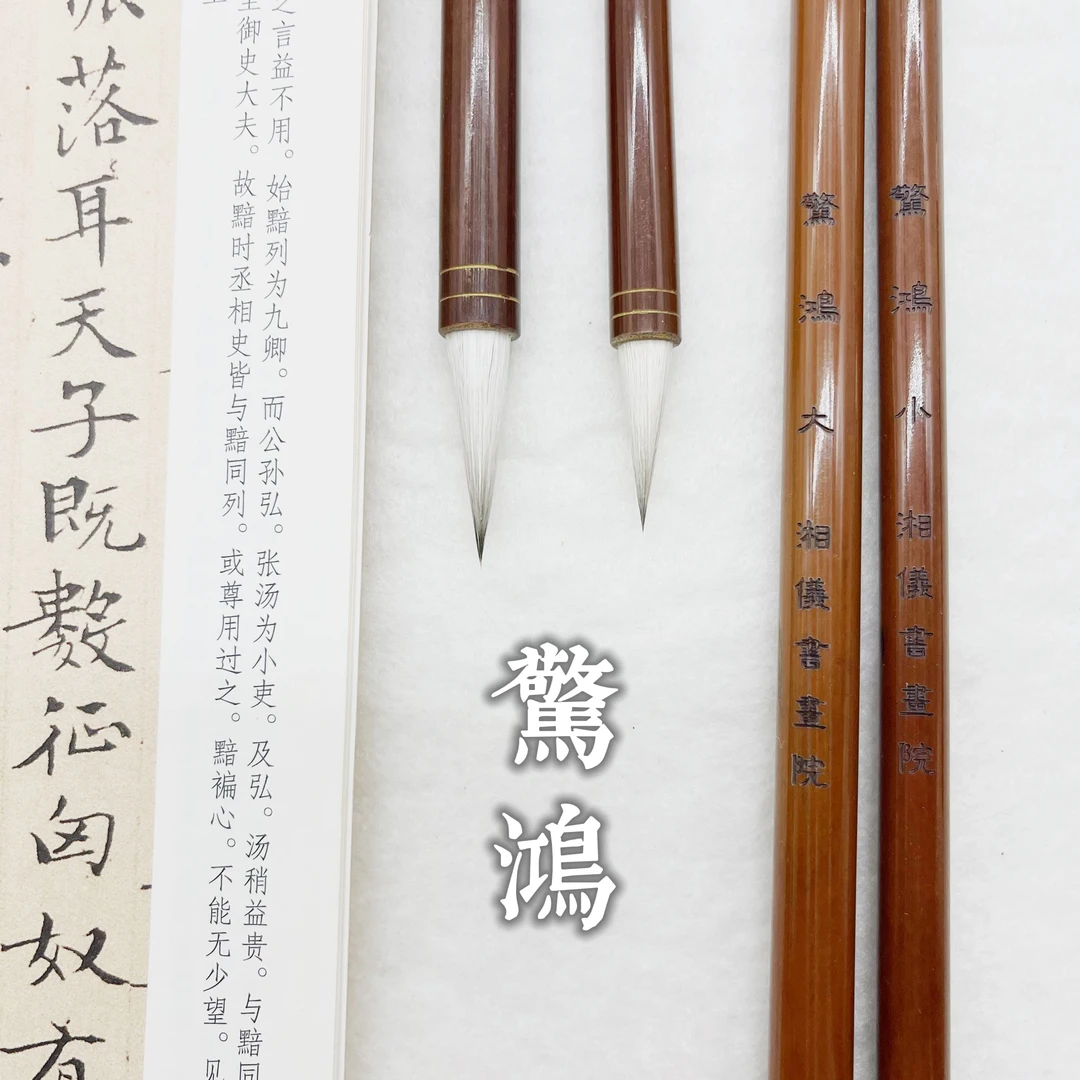 驚鴻小 湘儀書畫院
驚鴻大 湘儀書畫院
驚鴻
之言益不用。始黯列为九卿。而公孙弘。张汤为小吏。及弘。汤稍益贵。与黯同
至御史大夫。故黯时丞相史皆与黯同列。或尊用过之。黯褊心。不能无少望。见
落耳天子既數征匈奴有